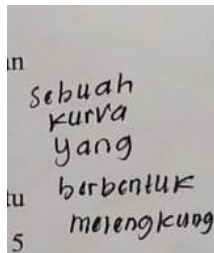 in
Sebuah
kurva
yang
tu berbentuk
melengkung
5